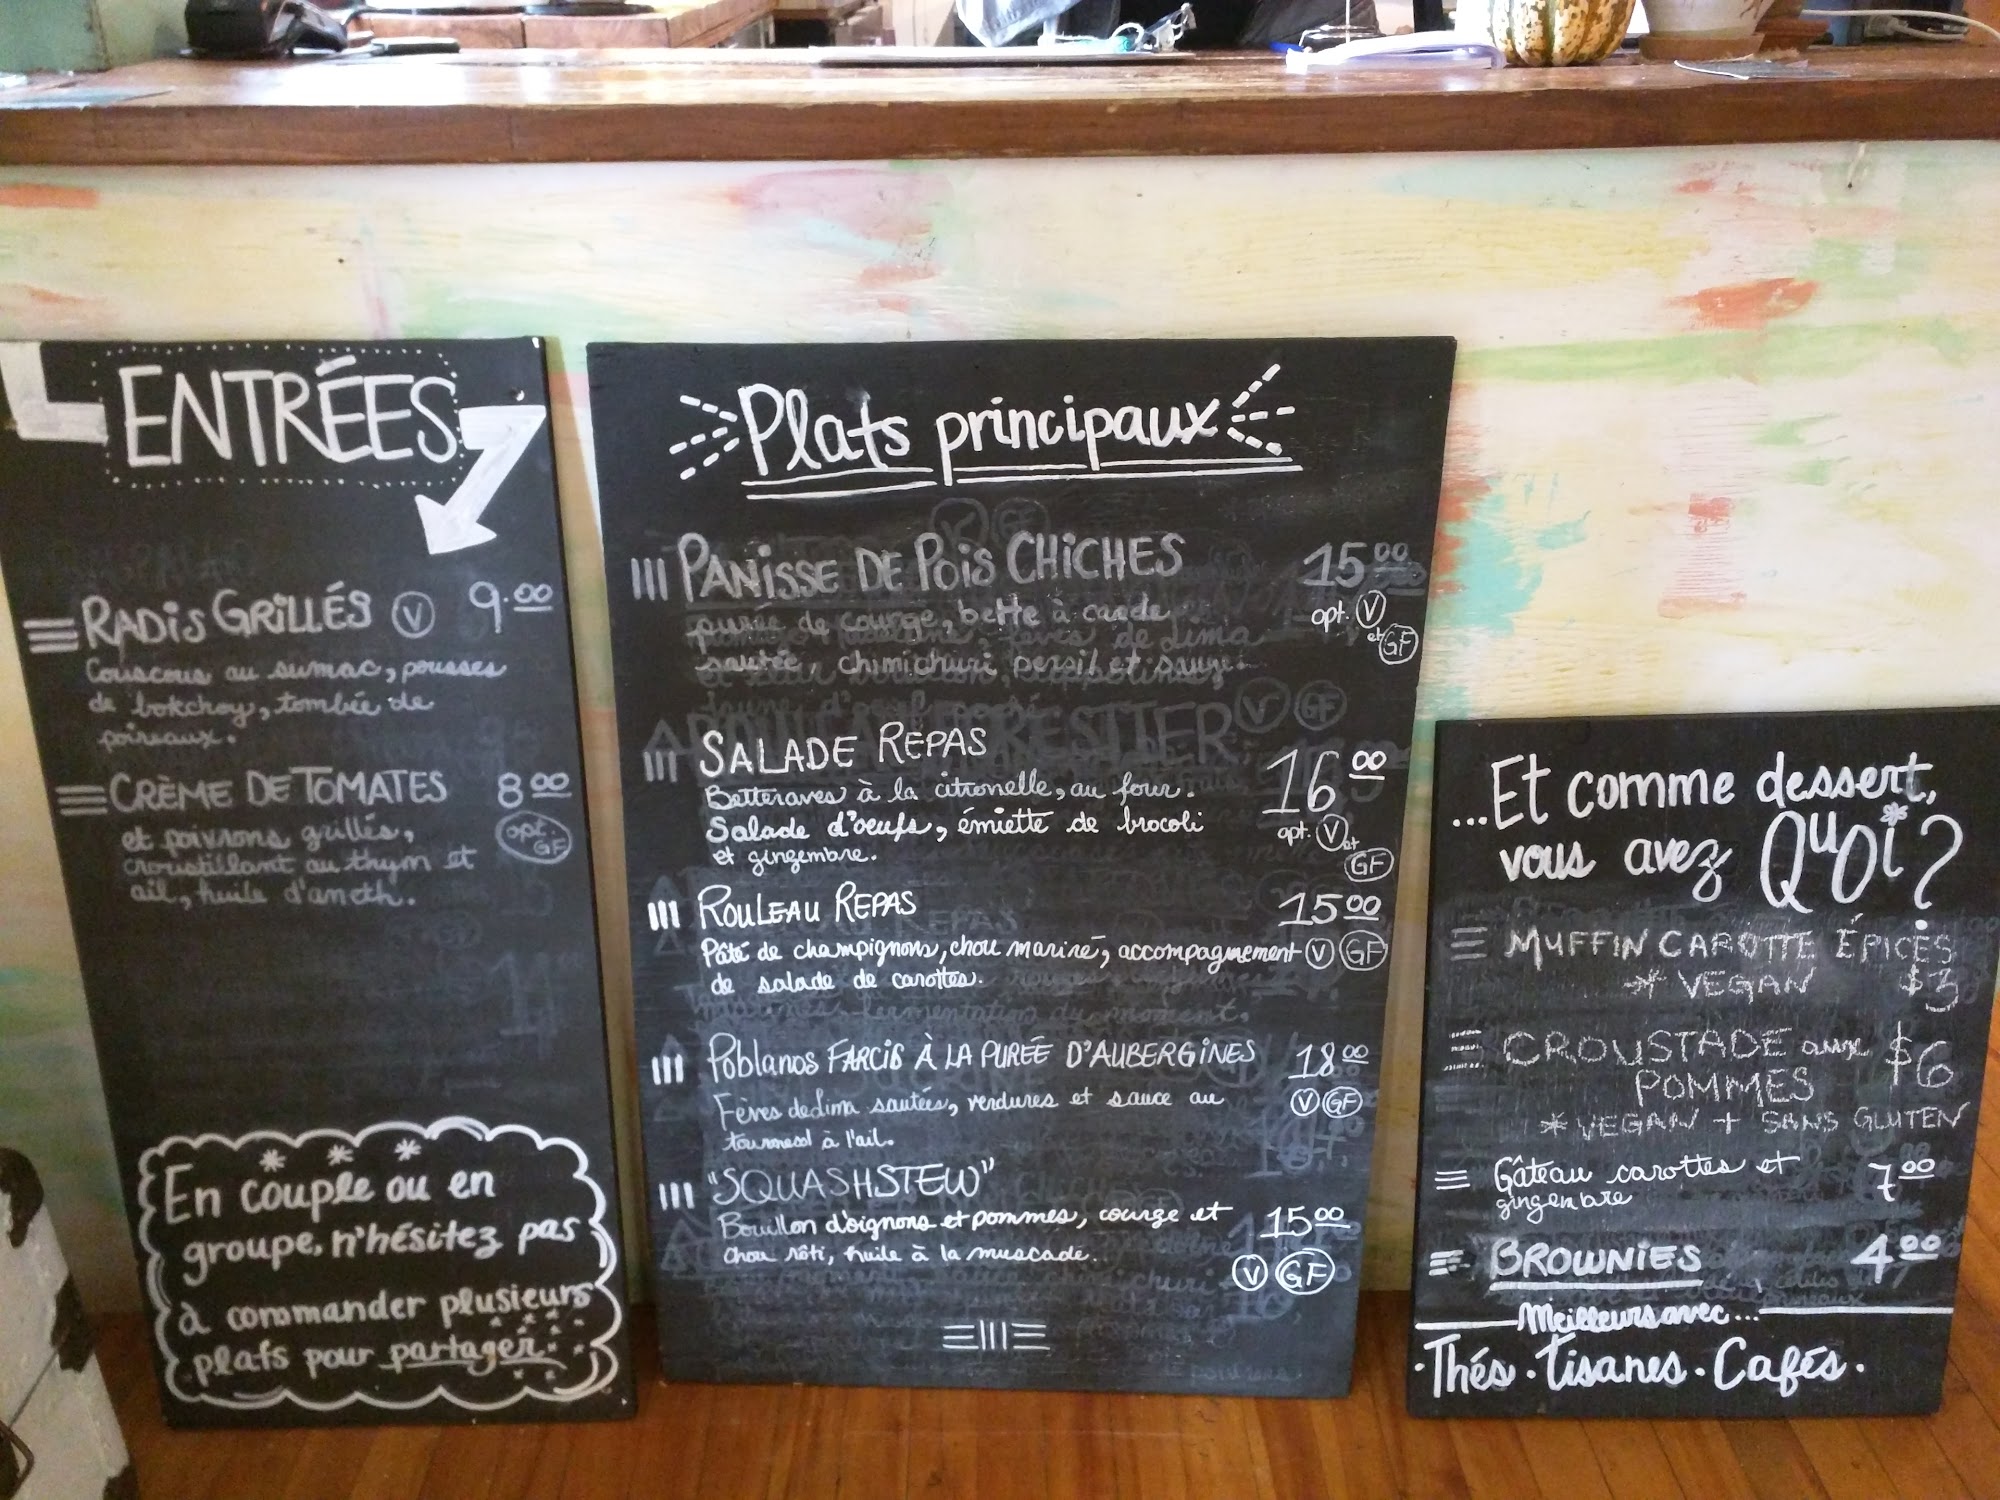 ENTRÉES
RADIS GRILLÉS V 9.00
Couscous au sumac, pousses
de bokchoy, tombée de
poireaux.
CRÈME DE TOMATES 8 00
et poivrons grillés, opt. GF
croustillant au thym et
ail, huile d'aneth.
En couple ou en
groupe, n'hésitez pas
à commander plusieurs
plats pour partager
Plats principaux
PANISSE DE POIS CHICHES 15 00
purée de courge, bette à carde opt. V
sautée, chimichuri persil et sauge. et GF
SALADE REPAS 16 00
Betteraves à la citronelle, au four.
Salade d'oeufs, émiette de brocoli opt. V et
et gingembre. GF
ROULEAU REPAS 15 00
Pâté de champignons, chou mariné, accompagnement V GF
de salade de carottes.
Poblanos FARCIS À LA PURÉE D'AUBERGINES 18 00
Fèves de Lima sautées, verdures et sauce au V GF
tournesol à l'ail.
"SQUASHSTEW"
Bouillon d'oignons et pommes, courge et 15 00
chou rôti, huile à la muscade. V GF
...Et comme dessert,
vous avez QuOi?
MUFFIN CAROTTE ÉPICES
* VEGAN $3
CROUSTADE aux $6
POMMES
* VEGAN + SANS GLUTEN
Gâteau carottes et 7 00
gingembre
BROWNIES 4 00
Meilleurs avec...
· Thés · Tisanes · Cafés ·